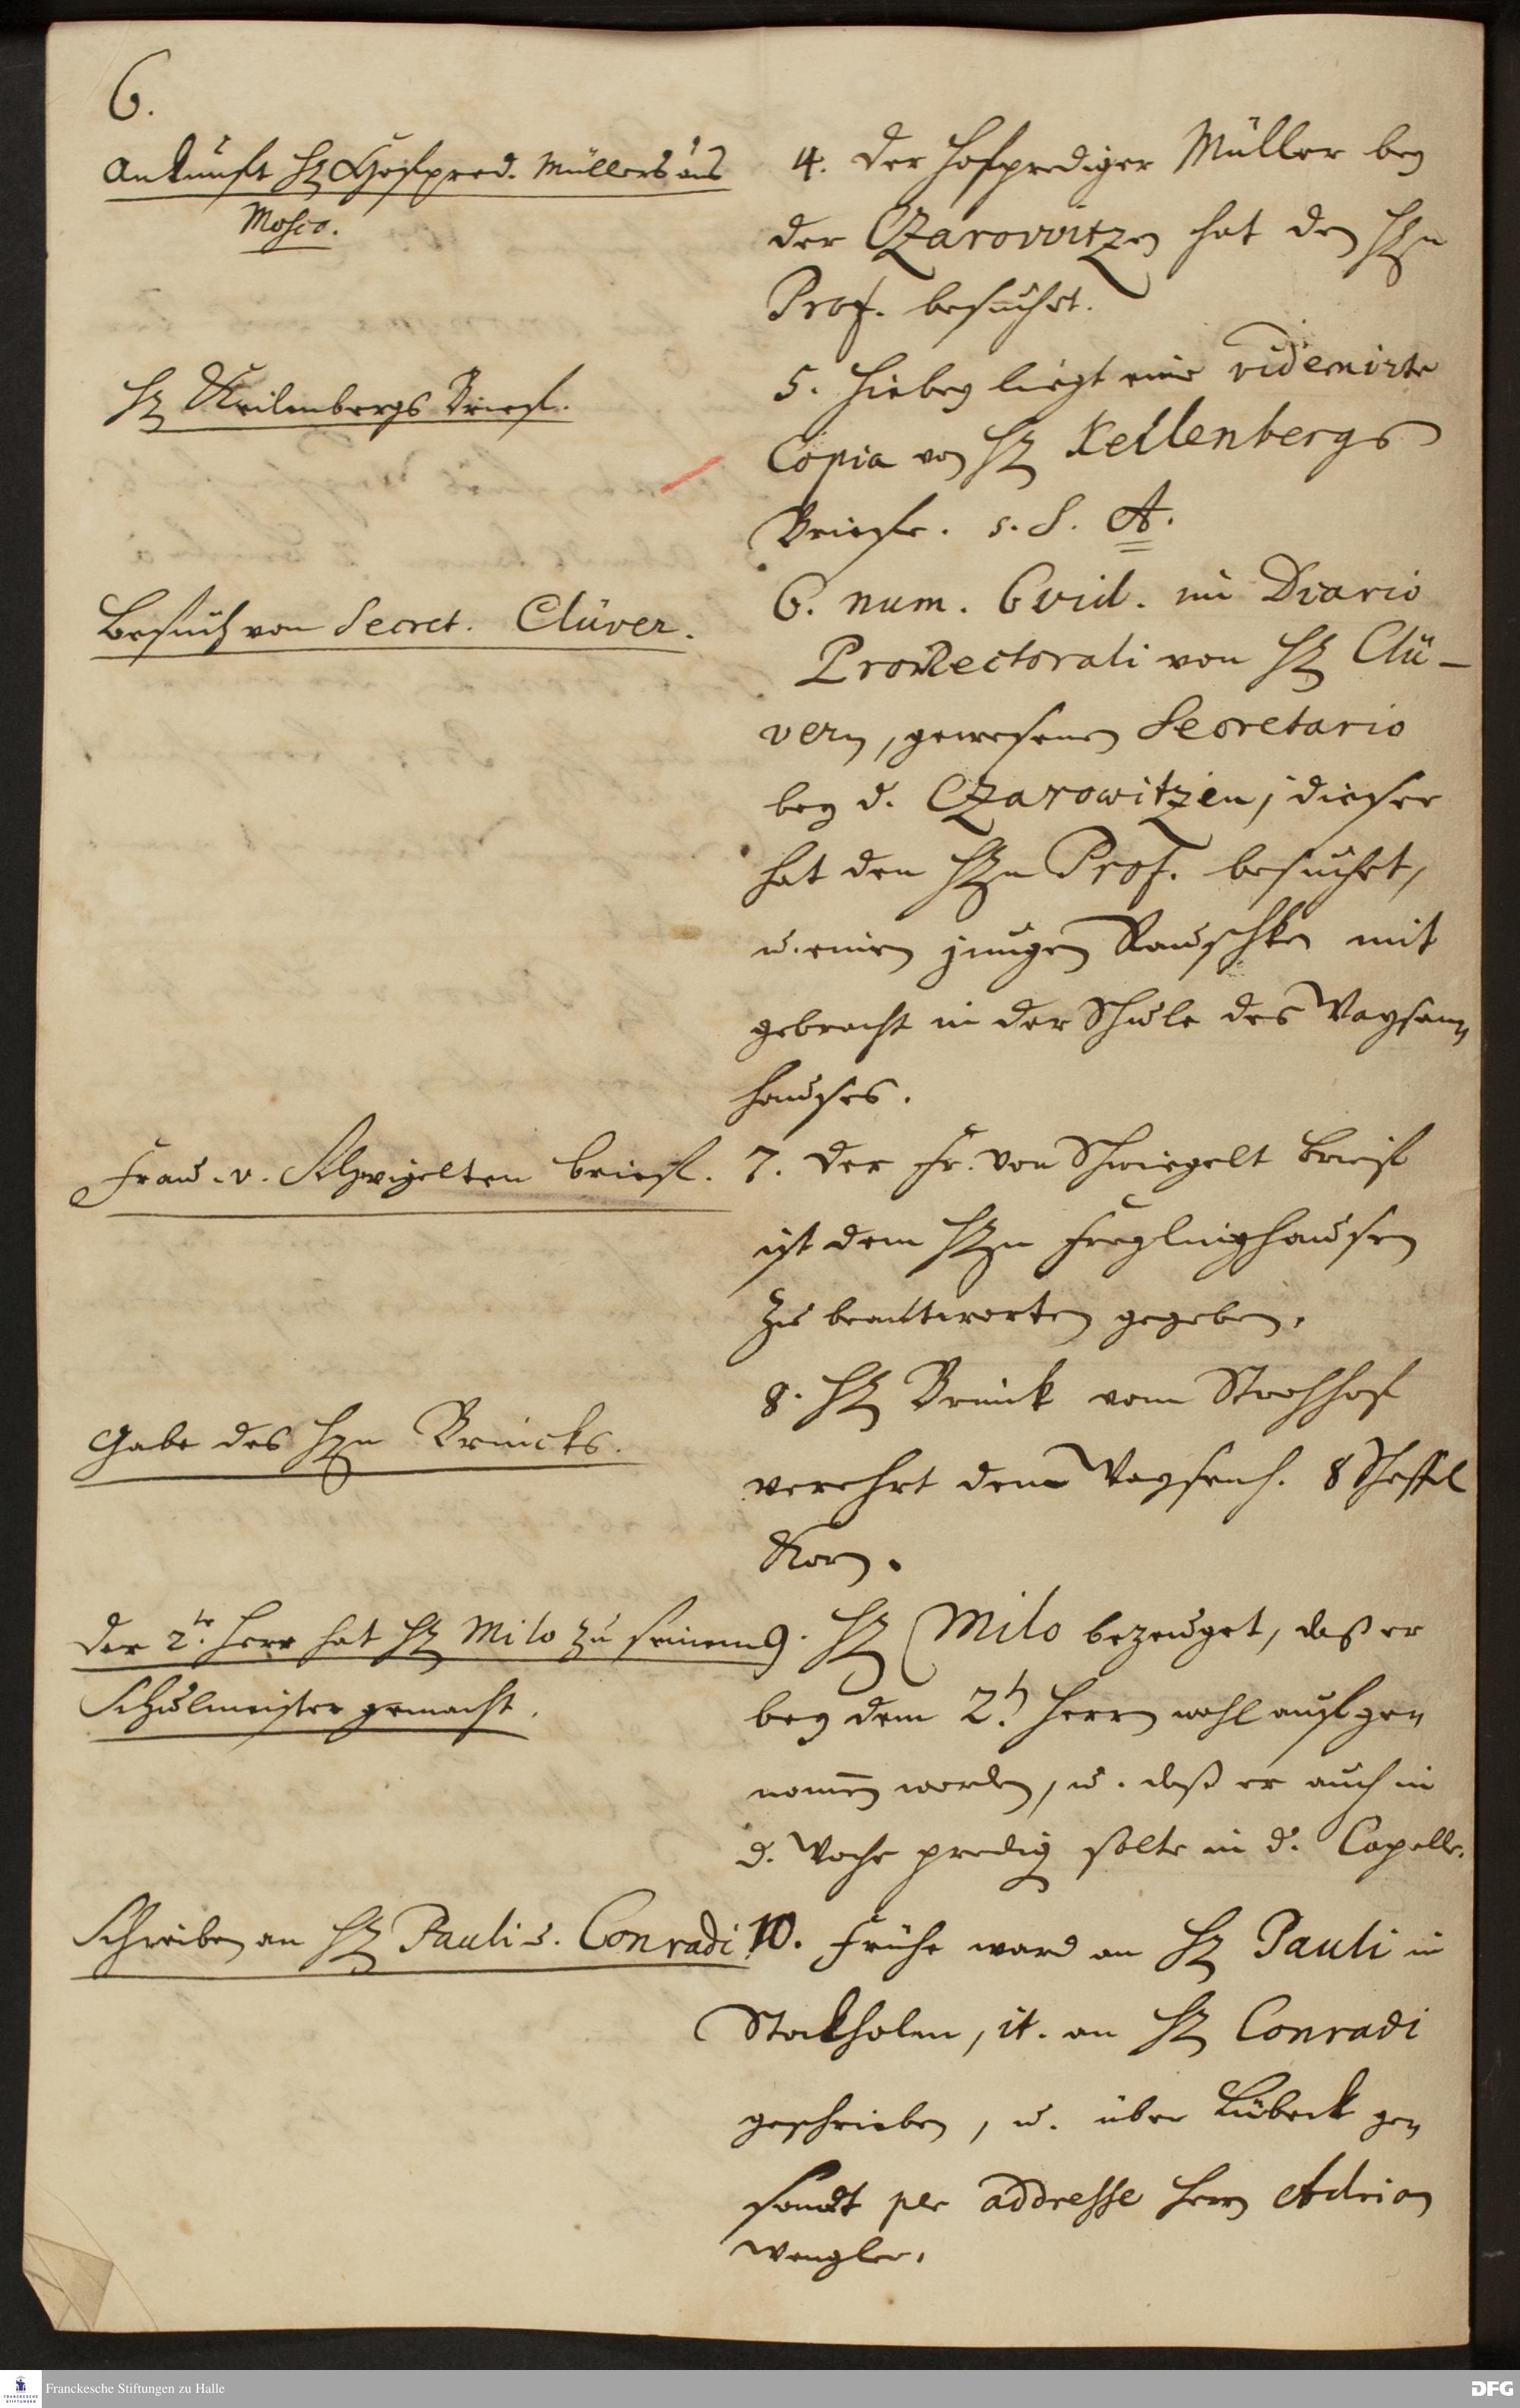 6.
Ankunft H. Hofpred. Müllers aus
Mosco.
4. Der Hofprediger Müller bey
der Czarowitzen hat den Hrn
Prof. besuchet.
H. Keilenbergs Brief.
5. Hiebey liegt eine videmirte
Copia von H. Kellenbergs
Briefe. s. S. A.
Besuch von Secret. Clüver.
6. num. 6 vid. im Diario
ProRectorali von H. Clü-
vern, gewesenen Secretario
bey d. Czarowitzen, dieser
hat den Hrn Prof. besuchet,
u. einen jungen mit
gebracht in der Schule des Waysen-
hauses.
Frau. v. Schwigelten brief.
7. Der Fr. von Schwiegelt Brief
ist dem Hrn Freylinghausen
zu beantworten gegeben.
Gabe des Hrn Brincks.
8. H. Brinck vom Strohhof
verehrt dem Waysenh. 8 Scheffel
Korn.
Der 2te Herr hat H. Milo zu seinem
Schulmeister gemacht.
9. H. Milo bezeuget, daß er
bey dem 2t. Herrn wohl aufge-
nom̅en worden, u. daß er auch in
d. Woche predig. solte in d. Capelle.
Schreiben an H. Pauli u. Conradi.
10. Frühe ward an H. Pauli in
Stockholm, it. an H. Conradi
geschrieben, u. über Lübeck ge-
sandt per addresse Herrn Adrian
Wengler.
Franckesche Stiftungen zu Halle
DFG